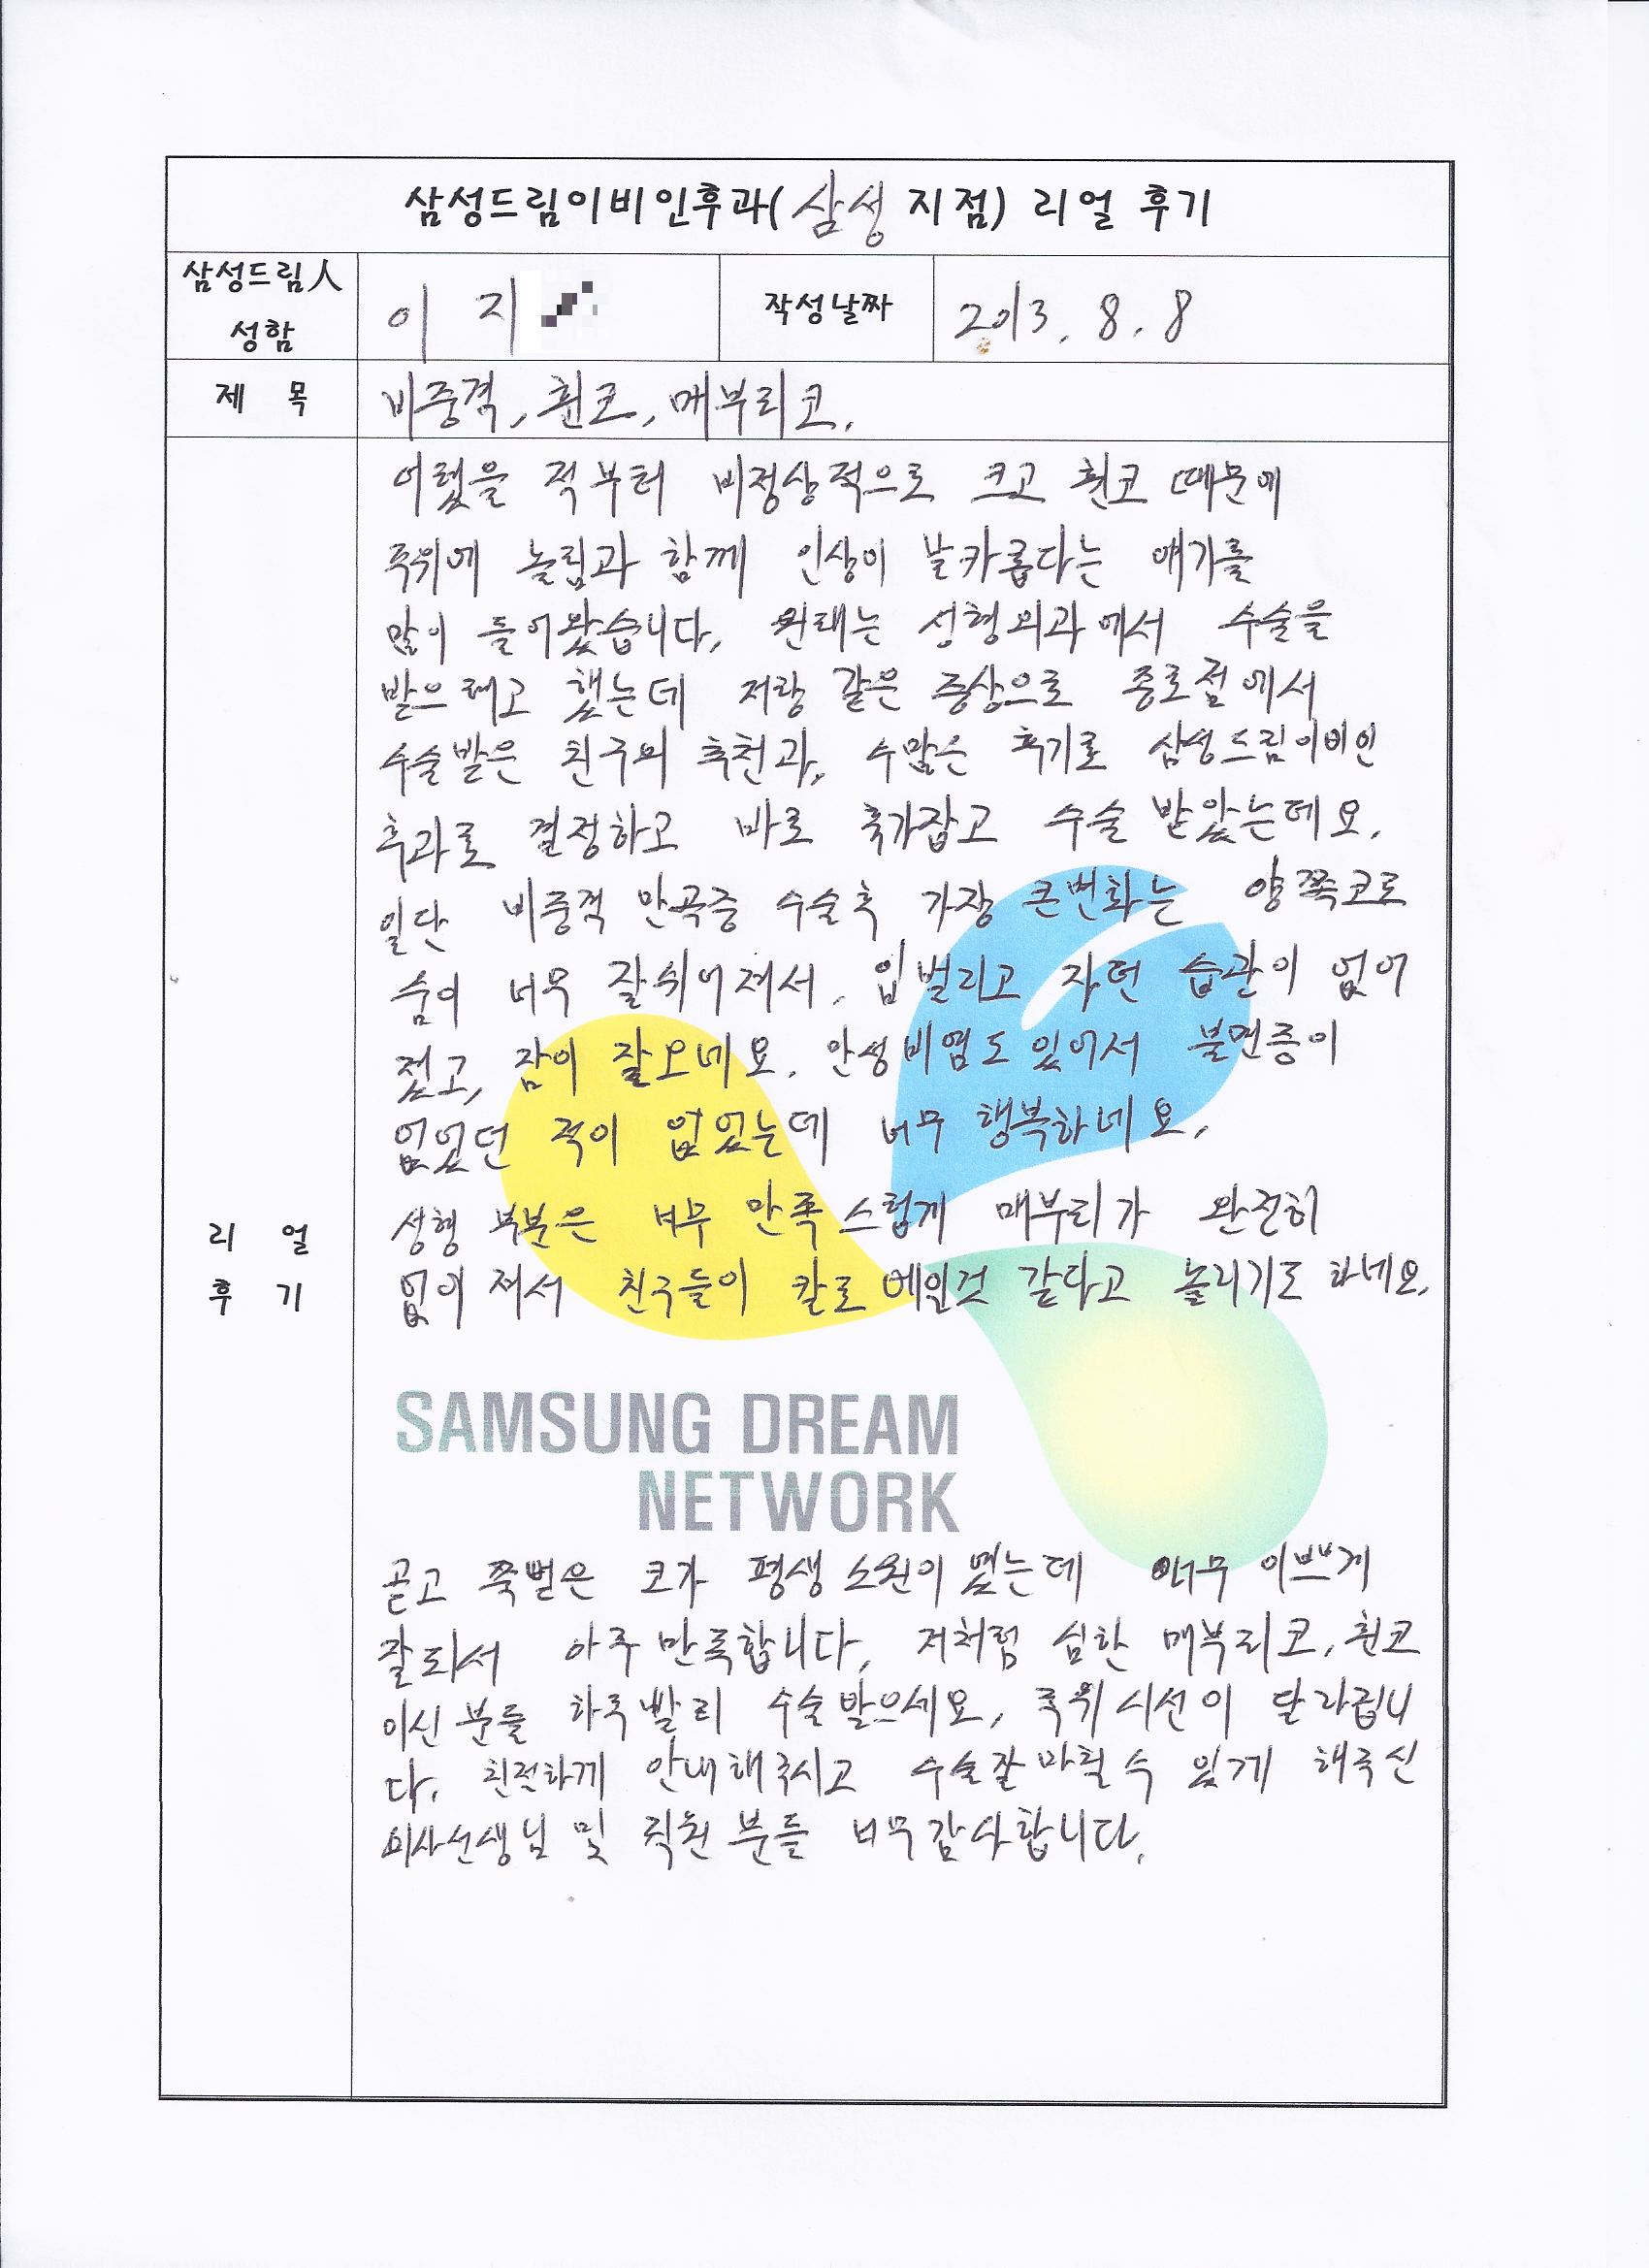 삼성드림이비인후과(삼성 지점) 리얼 후기
삼성드림人 성함
이 지
작성날짜
2013. 8. 8
제 목
비중격, 휜코, 매부리코.
리 얼
후 기
어렸을 적부터 비정상적으로 크고 휜코 때문에
주위에 놀림과 함께 인상이 날카롭다는 얘기를
많이 들어왔습니다. 원래는 성형외과에서 수술을
받으려고 했는데 저랑 같은 증상으로 종로점에서
수술받은 친구의 추천과, 수많은 후기로 삼성드림이비인
후과로 결정하고 바로 휴가잡고 수술 받았는데요.
일단 비중격 만곡증 수술후 가장 큰변화는 양쪽코로
숨이 너무 잘쉬어져서. 입벌리고 자던 습관이 없어
졌고, 잠이 잘오네요. 만성비염도 있어서 불면증이
없었던 적이 없었는데 너무 행복하네요.
성형 부분은 너무 만족스럽게 매부리가 완전히
없어져서 친구들이 칼로 베인것 같다고 놀리기도 하네요.
SAMSUNG DREAM
NETWORK
곧고 쭉뻗은 코가 평생 소원이였는데 너무 이쁘게
잘되서 아주 만족합니다. 저처럼 심한 매부리코, 휜코
이신 분들 하루빨리 수술받으세요, 주위 시선이 달라집니
다. 친절하게 안내해주시고 수술잘마칠수 있게 해주신
의사선생님 및 직원분들 너무감사합니다.